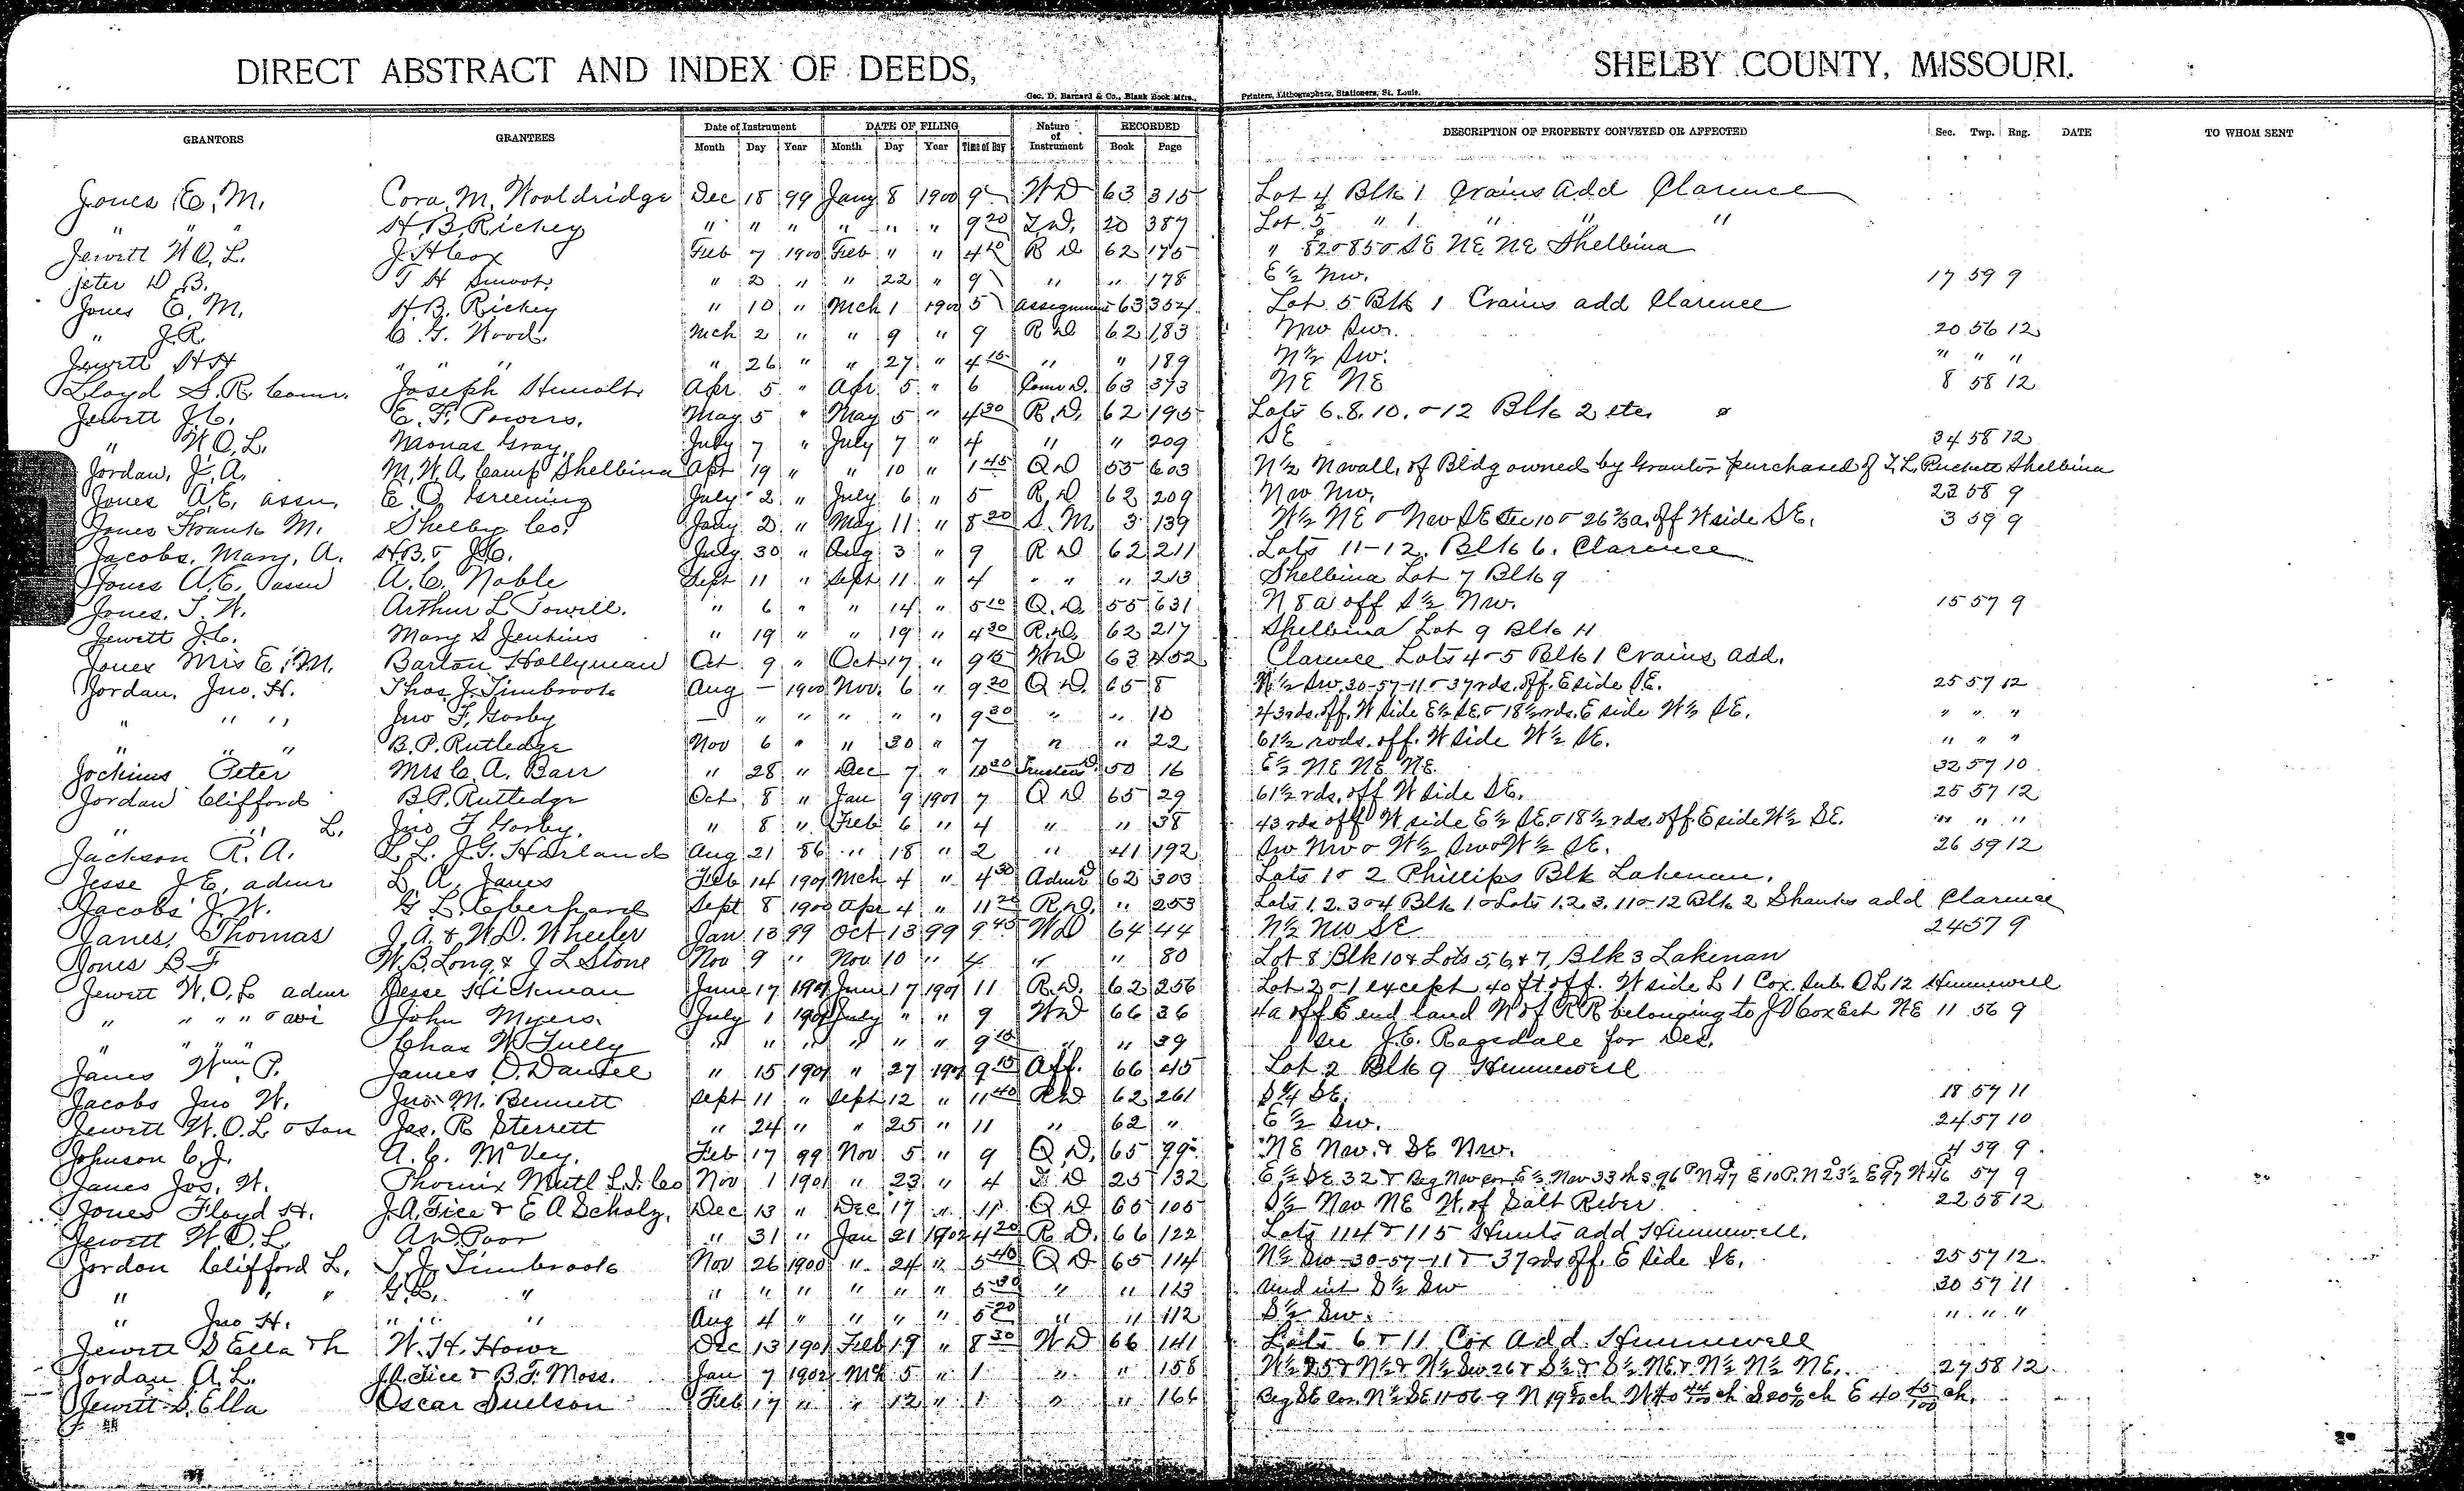 DIRECT ABSTRACT AND INDEX OF DEEDS, SHELBY COUNTY, MISSOURI.
Geo. D. Barnard & Co., Blank Book Mfrs., Printers, Lithographers, Stationers, St. Louis.
GRANTORS GRANTEES Date of Instrument DATE OF FILING Nature of Instrument RECORDED DESCRIPTION OF PROPERTY CONVEYED OR AFFECTED Sec. Twp. Rng. DATE TO WHOM SENT
Month Day Year Month Day Year Time of Day Book Page
Jones E. M. Cora M. Wooldridge Dec 18 99 Jany 8 1900 9 WD 63 315 Lot 4 Blk 1 Crains Add Clarence
" " " H. B. Rickey " " " " " " 9 20 T.D. 20 387 Lot 5 " 1 " " "
Jewett W. O. L. J H Cox Feb 7 1900 Feb " " 4 10 R D 62 175 " 82 & 85 SE NE NE Shelbina
Jeter D. B. T H Smoot " 2 " " 22 " 9 " " 178 E ½ NW. 17 59 9
Jones E. M. H. B. Rickey " 10 " Mch 1 1900 5 assignment 63 354 Lot 5 Blk 1 Crains add Clarence
" J. R. C. G. Wood. Mch 2 " " 9 " 9 R D 62 183 NW SW. 20 56 12
Jewett H H " " " " 26 " " 27 " 4 15 " " 189 N ½ SW. " " "
Lloyd S. R. Comr. Joseph Apr 5 " Apr 5 " 6 Comr D. 63 373 NE NE 8 58 12
Jewett J. C. E. F. Powers. May 5 " May 5 " 4 30 R. D. 62 195 Lots 6. 8. 10. & 12 Blk 2 etc
" W. O. L. Monas Gray July 7 " July 7 " 4 " " 209 SE 34 58 12
Jordan, J. A. M. W. A. Camp Shelbina Apr 19 " " 10 " 1 45 Q D 55 603 N ½ N wall, of Bldg owned by Grantor purchased of T. L. Puckett Shelbina
Jones A. E. assn. E. O. Greening July 2 " July 6 " 5 R. D 62 209 NW NW. 23 58 9
Jones Frank M. Shelby Co. Jany 2 " May 11 " 8 20 S. M. 3 139 W ½ NE & NW SE Sec 10 & 26 ⅔ a. off W side SE. 3 59 9
Jacobs, Mary, A. H. B. & J. C. July 30 " Aug 3 " 9 R D 62 211 Lots 11-12. Blk 6. Clarence
Jones A. E. assn A. C. Noble Sept 11 " Sept 11 " 4 " " " 213 Shelbina Lot 7 Blk 9
Jones. T. W. Arthur L Powell. " 6 " " 14 " 5 10 Q. D. 55 631 N 8 a off S ½ NW. 15 57 9
Jewett J. C. Mary S Jenkins " 19 " " 19 " 4 30 R. D. 62 217 Shelbina Lot 9 Blk 11
Jones Mrs E. M. Barton Hollyman Oct 9 " Oct 17 " 9 15 WD 63 452 Clarence Lots 4 & 5 Blk 1 Crains add.
Jordan. Jno. H. Thos. J. Timbrook Aug — 1900 Nov. 6 " 9 20 Q D. 65 8 N ½ SW. 30-57-11 & 37 rds. off E side SE. 25 57 12
" " " Jno F. Gosby — " " " " " 9 30 " " 10 43 rds. off. W side E ½ SE. & 18 ½ rds. E side W ½ SE. " " "
" " " B. P. Rutledge Nov 6 " " 30 " 7 " " 22 61 ½ rods. off. W side W ½ SE. " " "
Jochims Peter Mrs C. A. Barr " 28 " Dec 7 " 10 30 Trustees D. 50 16 E ½ NE NE NE. 32 57 10
Jordan Clifford B. P. Rutledge Oct 8 " Jan 9 1901 7 Q D 65 29 61 ½ rds. off W side SE. 25 57 12
" " L. Jno F Gosby. " 8 " Feb 6 " 4 " " 38 43 rds off W side E ½ SE. & 18 ½ rds. off E side W ½ SE. " " "
Jackson R. A. L. L. J. G. Harland Aug 21 86 " 18 " 2 " 41 192 SW NW & W ½ SW & W ½ SE. 26 59 12
Jesse J. E. admr L. A. Janes Feb 14 1901 Mch 4 " 4 30 Admr D 62 303 Lots 1 & 2 Phillips Blk Lakenan.
Jacobs J. W. G L. Eberhard Sept 8 1900 Apr 4 " 11 20 R. D. " 253 Lots 1. 2. 3 & 4 Blk 1 & Lots 1. 2. 3. 11 & 12 Blk 2 Shanks add Clarence
Janes, Thomas J. A. & W. D. Wheeler Jan 13 99 Oct 13 99 9 45 WD 64 44 N ½ NW SE 24 57 9
Jones B F W. B. Long & J L Stone Nov 9 " Nov 10 " 4 " " 80 Lot 8 Blk 10 & Lots 5, 6, & 7, Blk 3 Lakenan
Jewett W. O. L admr Jesse Hickman June 17 1901 June 17 1901 11 R. D. 62 256 Lot 2 & 1 except 40 ft off. W side L 1 Cox Sub. O L 12 Hunnewell
" " " " John Myers. July 1 1901 July " " 9 WD 66 36 4 a off E end land W of R R belonging to J. Cox Est NE 11 56 9
" " " " Chas W Tully " " " " " " 9 10 " " 39 See J. E. Ragsdale for Des.
Janes Wm. P. James D. Dansel " 15 1901 " 27 1901 9 15 Aff. 66 45 Lot 2 Blk 9 Hunnewell
Jacobs Jno W. Jno. M. Bennett Sept 11 " Sept 12 " 11 40 R D 62 261 S ¼ SE. 18 57 11
Jewett W. O. L & Son Jas. R Sterrett " 24 " " 25 " 11 " 62 " E ½ SW. 24 57 10
Johnson C. J. A. C. McVey. Feb 17 99 Nov 5 " 9 Q. D. 65 99 NE NW. & SE NW. 4 59 9
Janes Jos. W. Phoenix Mutl L. I. Co Nov 1 1901 " 23 " 4 T. D 25 132 E ½ SE 32 & Beg NW cor E ½ NW 33 57 9
Jones Floyd H. J. A. Tice & E A Scholz. Dec 13 " Dec 17 " 11 Q D 65 105 S ½ NW NE W. of Salt River 22 58 12
Jewett W. O. L A D. Poor " 31 " Jan 21 1902 4 20 R D. 66 122 Lots 114 & 115 Hunts add Hunnewell.
Jordon Clifford L. T. J. Timbrook Nov 26 1900 " 24 " 5 40 Q D 65 114 N ½ SW-30-57-11 & 37 rds off. E side SE. 25 57 12
" " " G. C. " " " " " " " 5 30 " " 113 und int S ½ SW 30 57 11
" Jno H. " " " Aug 4 " " " " 5 20 " " 112 S ½ SW. " " "
Jewett S Ella & h W. H. Howe Dec 13 1901 Feb 19 " 8 30 WD 66 141 Lots 6 & 11 Cox Add. Hunnewell
Jordan A. L. J. A. Tice & B. F. Moss. Jan 7 1902 Mch 5 " 1 " " 158 W ½ 25 & N ½ & N ½ SW 26 & S ½ & S ½ NE & N ½ N ½ NE. 27 58 12
Jewett S. Ella Oscar Suelson Feb 17 " " 12 " 1 " " 166 Beg SE Cor. N ½ SE 11-56-9